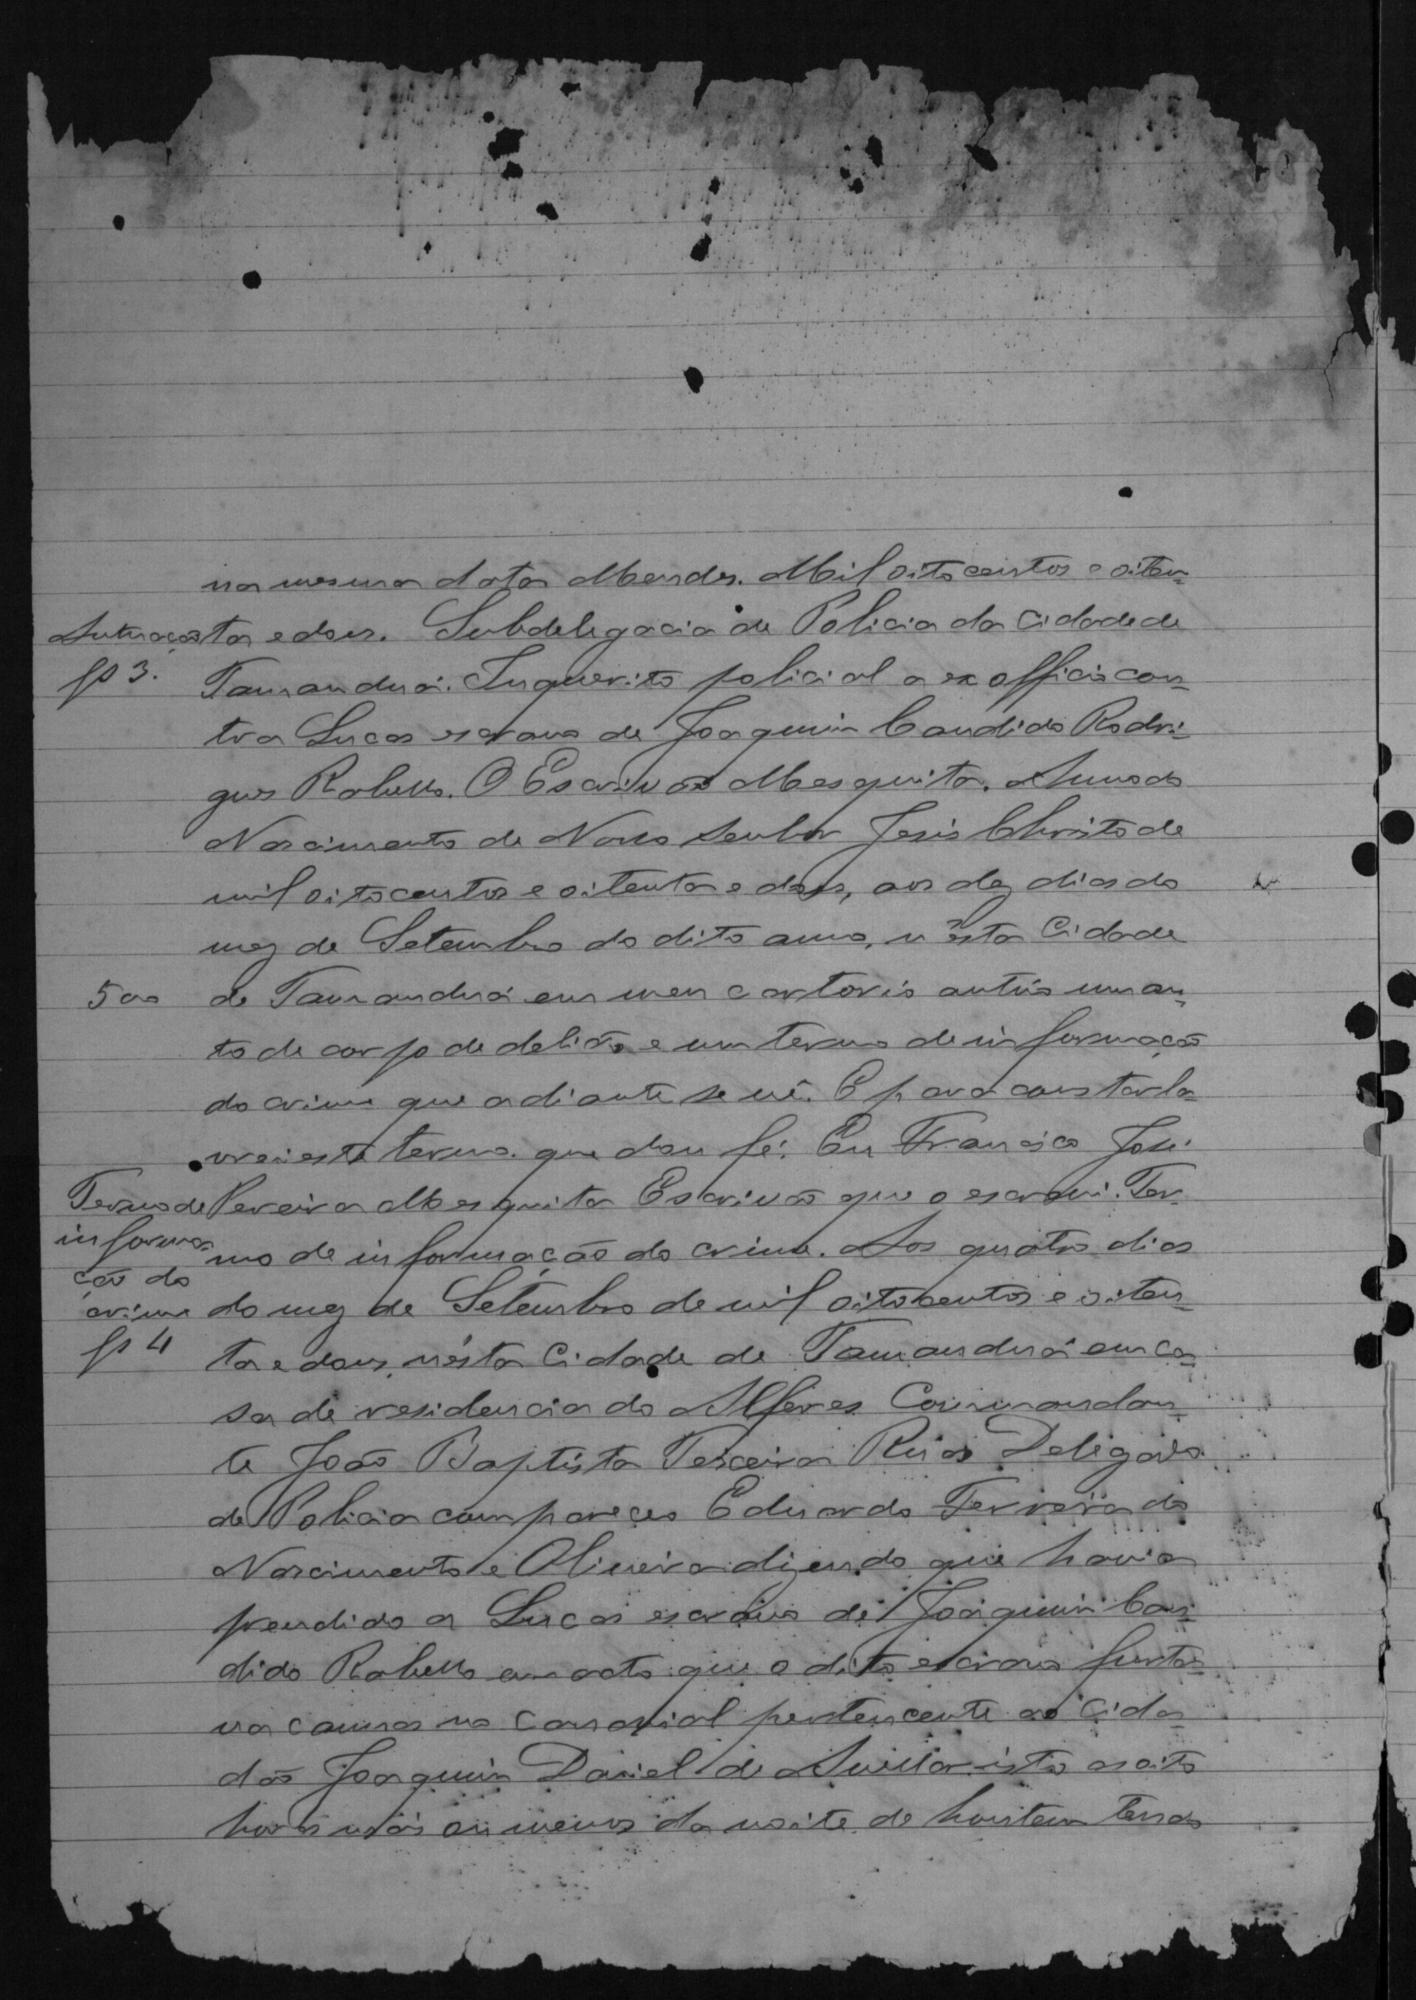 na mesma data Mendes. Mil oito centos e oiten-
Autuação
fls 3.
ta e dous. Subdelegacia de Policia da Cidade de
Tamanduá. Inquerito policial a ex officio con-
tra Lucas escravo de Joaquim Candido Rodri-
gues Rabello. O Escrivão Mesquita. Anno do
Nascimento de Nosso Senhor Jesus Christo de
mil oito centos e oitenta e dous, aos dez dias do
mez de Setembro do dito anno, n'esta Cidade
500
de Tamanduá em meu cartorio autúo um au-
to de corpo de delicto e um termo de informação
do crime que adiante se vê. E para constar la-
vrei este termo. que dou fé. Eu Francisco José
Termo de
informa-
ção do
crime
fls 4
Pereira Mesquita Escrivão que o escrevi. Ter-
mo de informação do crime. Aos quatro dias
do mez de Setembro de mil oito centos e oiten-
ta e dous, n'ésta Cidade de Tamanduá em ca-
sa de residencia do Alferes Commandan-
te João Baptista Teixeira Ruas Delegado
de Policia compareceo Eduardo Ferreira do
Nascimento e Oliveira dizendo que havia
prendido a Lucas escravo de Joaquim Can-
dido Rabello em acto que o dito escravo furta-
va cannas no cannavial pertencente ao Cida-
dão Joaquim Daniel de isto as oito
horas mais ou menos da noite de hontem